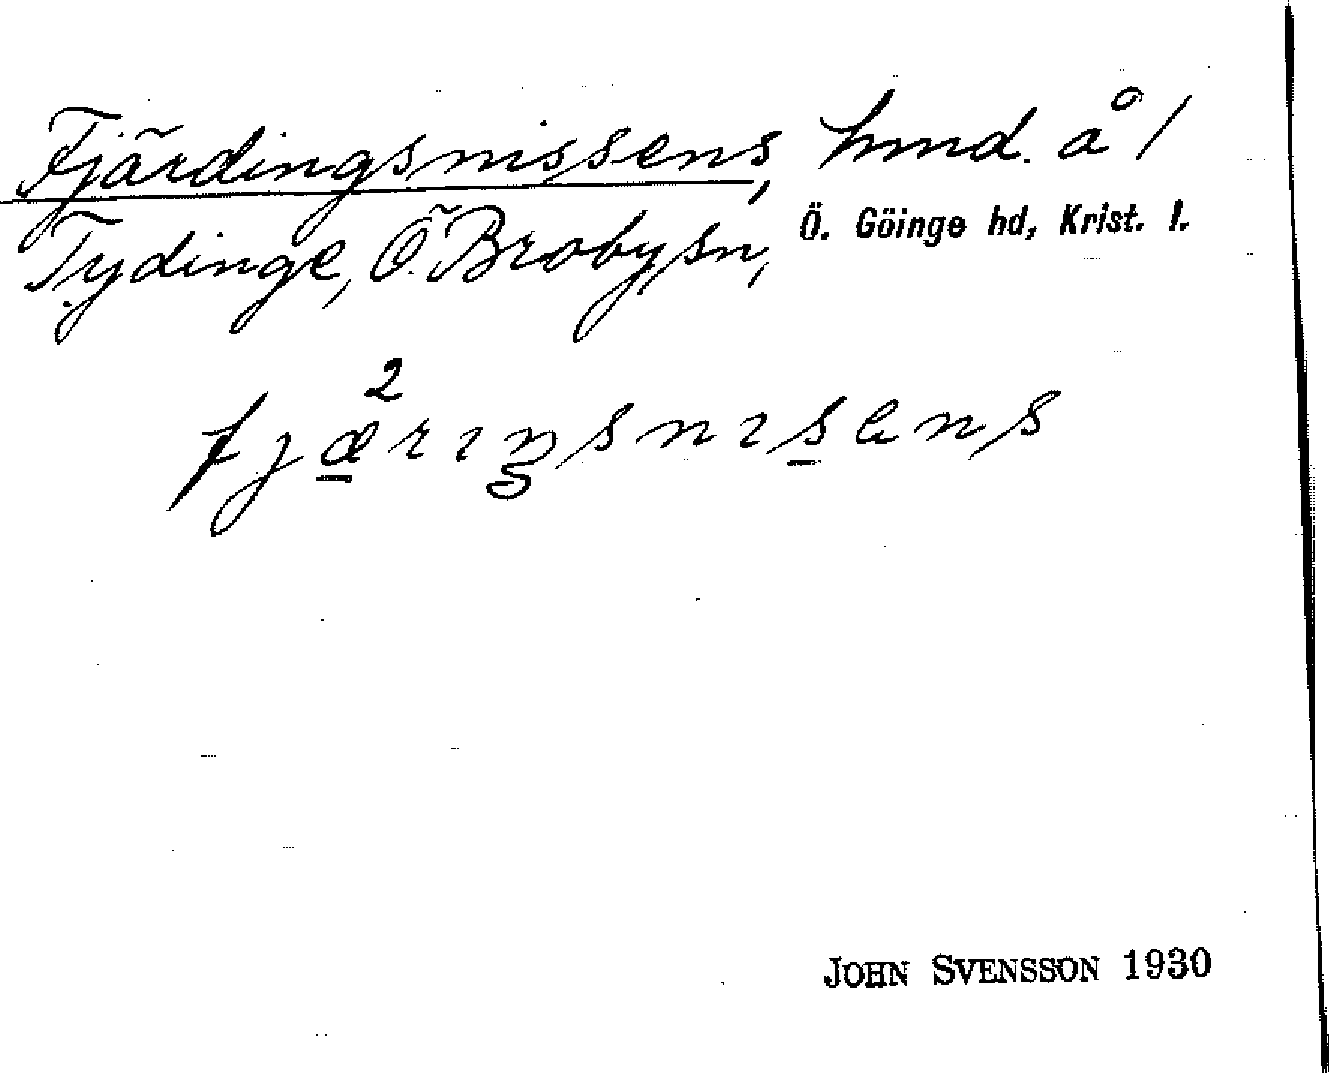 Fjärdingsnissens, hmd. å 1
Tydinge, Ö. Broby sn, Ö. Göinge hd, Krist. l.
fjæ²rıŋsnısens
JOHN SVENSSON 1930